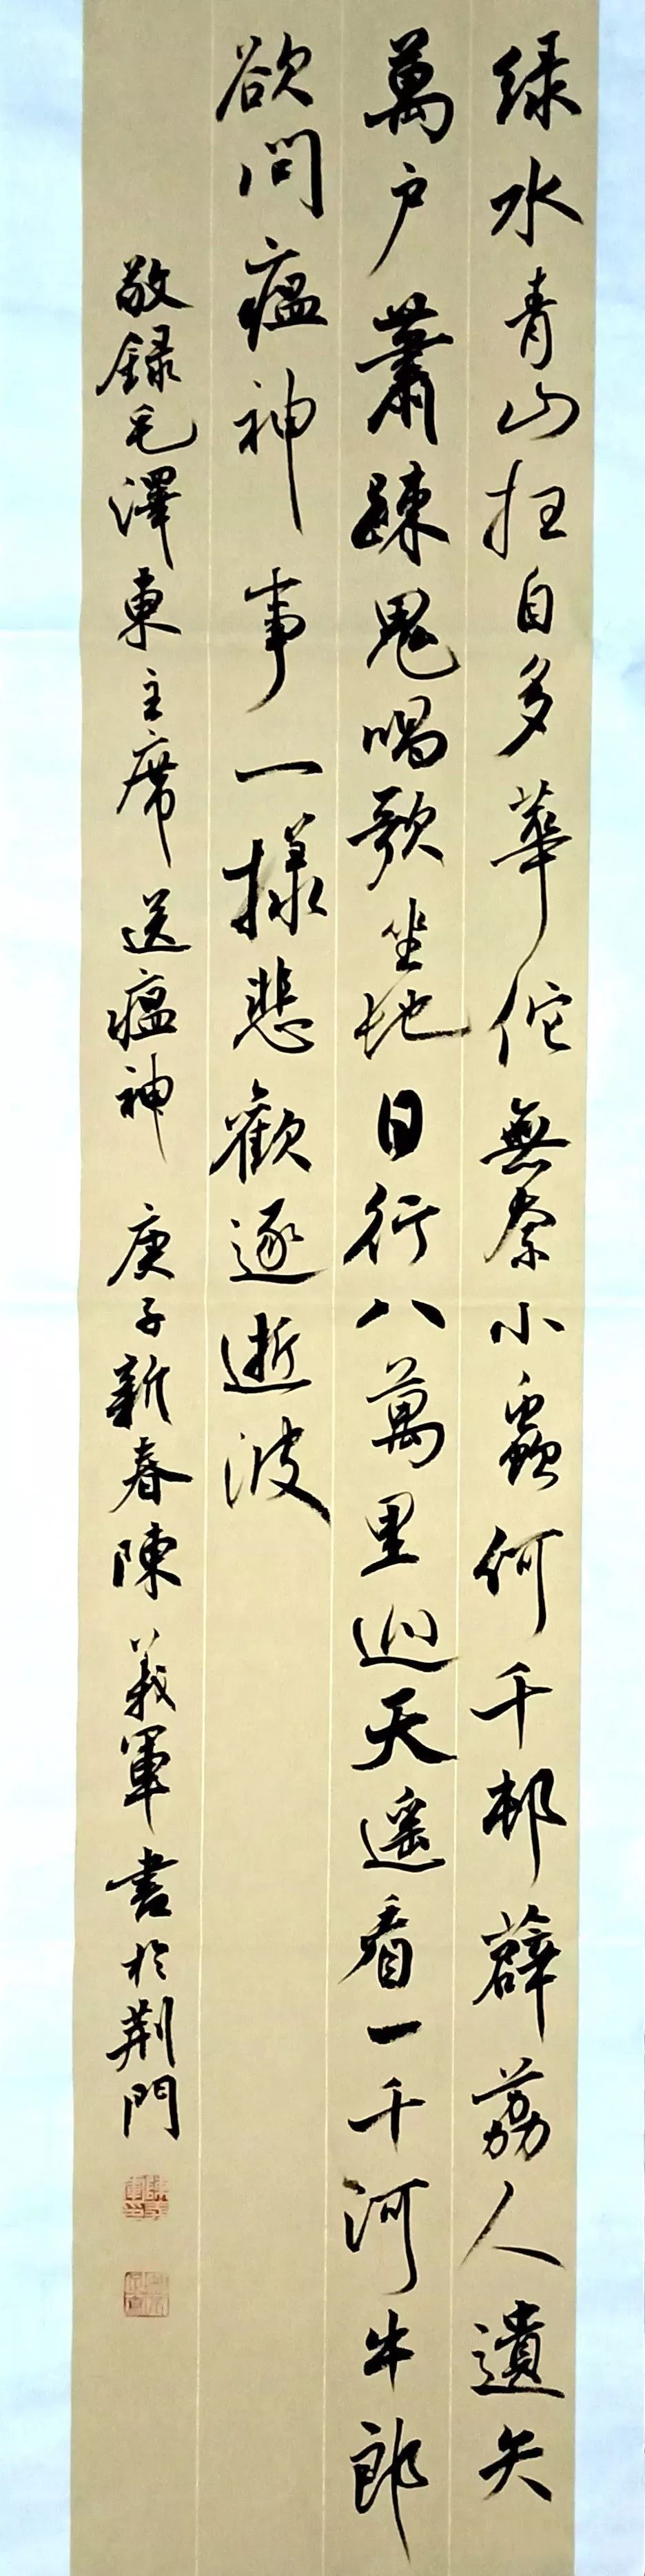 绿水青山枉自多華佗無奈小蟲何千邨薜荔人遺矢
萬户蕭疎鬼唱歌坐地日行八萬里巡天遥看一千河牛郎
欲問瘟神事一樣悲歡逐逝波
敬録毛澤東主席送瘟神 庚子新春陳義軍書於荆門